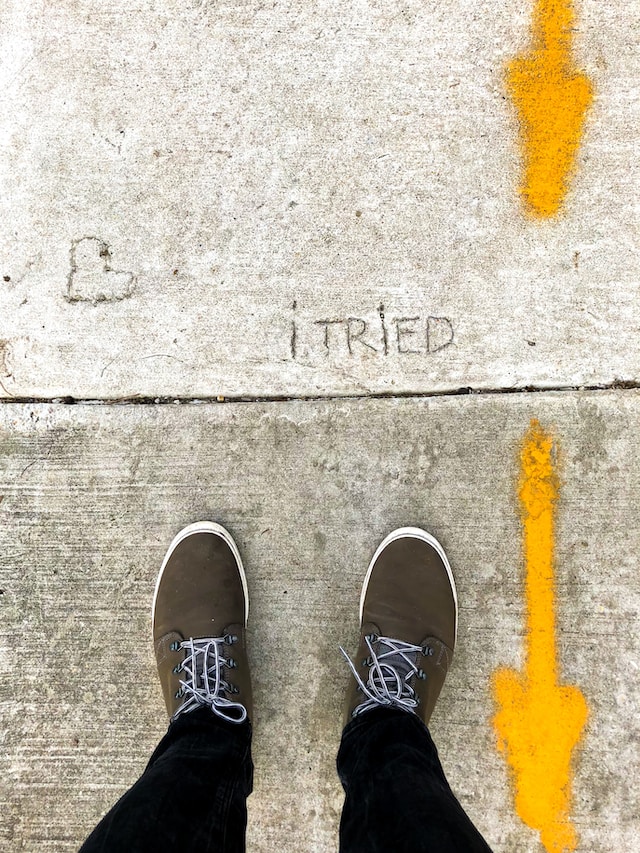 i TRiED